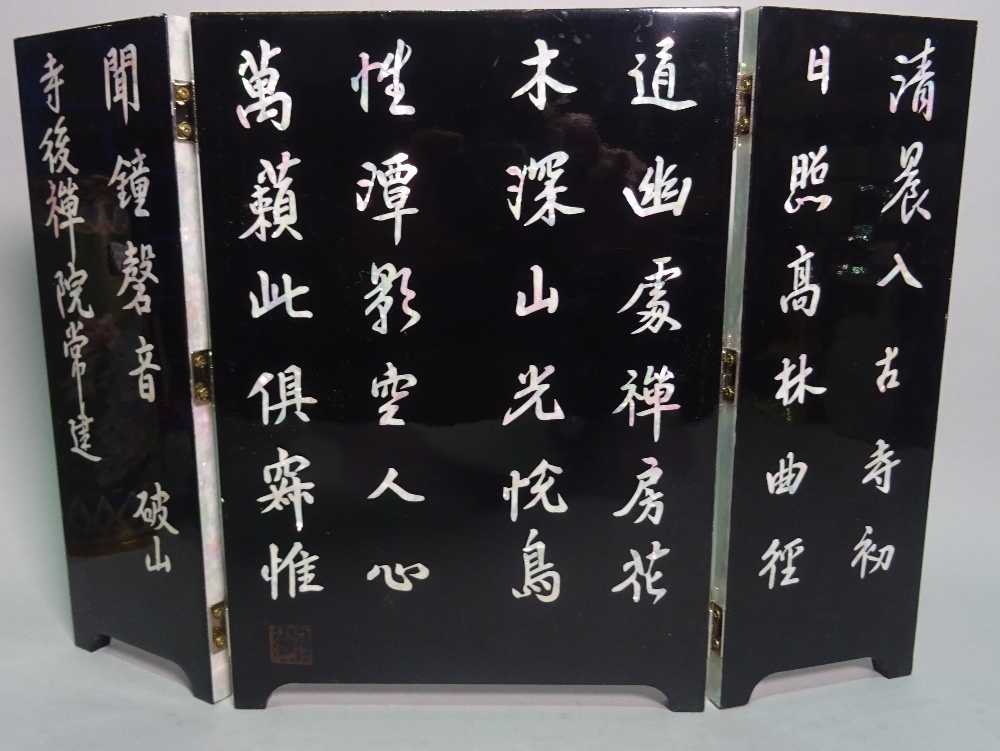 清晨入古寺初
日照高林曲徑
通幽處禪房花
木深山光悅鳥
性潭影空人心
萬籟此俱寂惟
聞鐘磬音 破山
寺後禪院常建